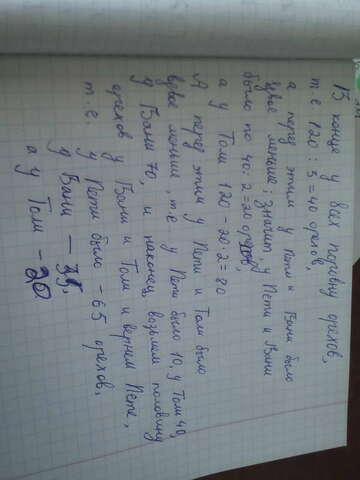 В конце у всех поровну орехов,
т.е 120 : 3 = 40 орехов,
а перед этим у Пети и Вани было
вдвое меньше; Значит, у Пети и Вани
было по 40 : 2 = 20 орехов,
а у Толи 120 - 20 · 2 = 80
А перед этим у Пети и Толи было
вдвое меньше, т.е у Пети было 10, у Толи 40,
у Вани 70, и наконец, возьмем половину
орехов у Вани и Толи и вернем Пете,
т.е. у Пети было - 65 орехов,
у Вани - 35,
а у Толи - 20